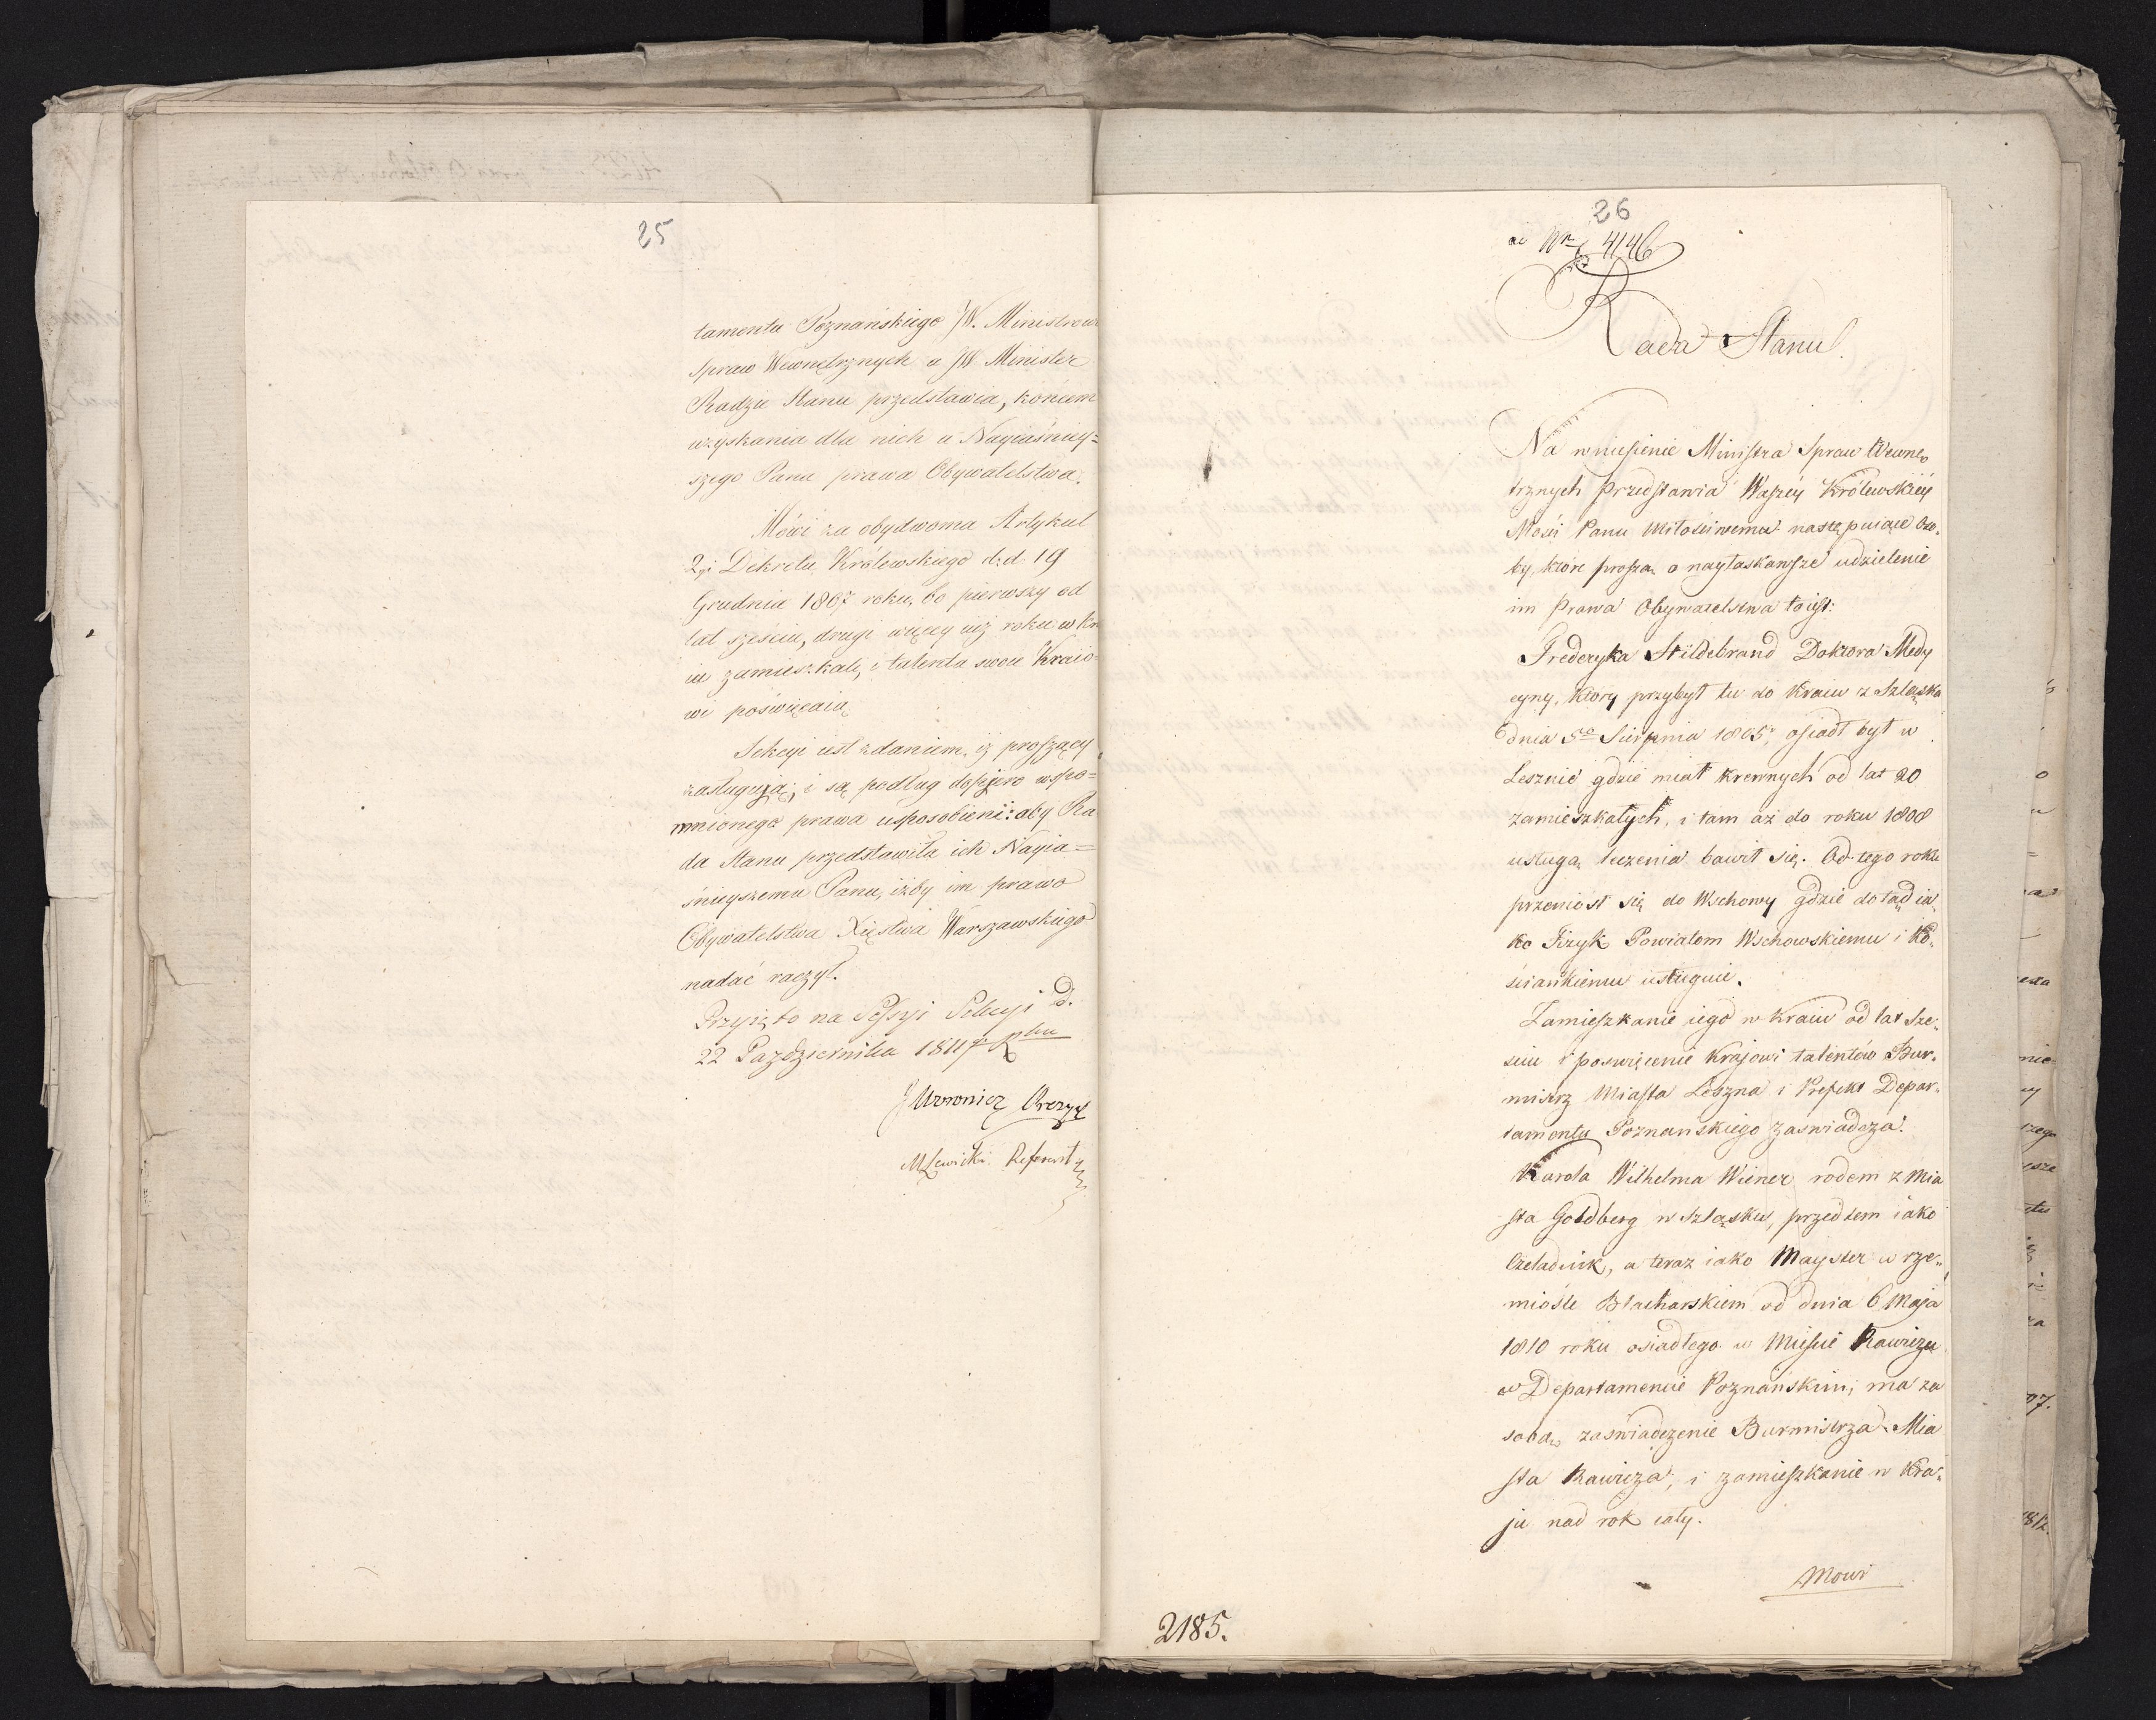 25
tamentu Poznańskiego JW. Ministrowi
Spraw Wewnętrznych a JW. Minister
Radzie Stanu przedstawia, końcem
uzyskania dla nich u Nayiaśniey=
szego Pana prawa Obywatelstwa.
Mówi za obydwoma Artykuł
2gi Dekretu Królewskiego d.d. 19
Grudnia 1807 roku, bo pierwszy od
lat sześciu, drugi więcey niż roku w Kra
iu zamieszkały, i talenta swoie Kraio=
wi poświęcaią
Sekcyi iest zdaniem, iż proszący
zasługują, i są podług dopiero wspo=
mnionego prawa usposobieni: aby Ra
da Stanu przedstawiła ich Nayia=
śnieyszemu Panu, iżby im prawo
Obywatelstwa Xięstwa Warszawskiego
nadać raczył.
Przyięto na Sessyi Sekcyi d.
22 Października 1811
Woronicz Prezyd
MLewicki Referent
26
ad Nr 4146
Rada Stanu.
Na wniesienie Ministra Spraw Wewnę„
trznych przedstawia Waszey Królewskiey
Mości Panu Miłościwemu następuiące Oso„
by, które proszą o nayłaskawsze udzielenie
im Prawa Obywatelstwa to iest:
Frederyka Hildebrand Doktora Medy
cyny, który przybył tu do Kraiu z Szląska
dnia 5go Sierpnia 1805r, osiadł był w
Lesznie gdzie miał krewnych od lat 20
zamieszkałych, i tam aż do roku 1808
usługą leczenia bawił się. Od tego roku
przeniósł się do Wschowy gdzie dotąd ia„
ko Fizyk Powiatom Wschowskiemu i Ko„
ściańskiemu usługuie.
Zamieszkanie iego w kraiu od lat sze„
ściu i poswięcenie Krajowi talentów Bur„
mistrz Miasta Leszna i Prefekt Depar„
tamentu Poznanskiego zaswiadcza.
Karola Wilhelma Wiener rodem z Mia
sta Goldberg w Szląsku, przedtem iako
Czeladnik, a teraz iako Mayster w rze„
mióśle Blacharskiem od dnia 6 Maja
1810 roku osiadłego w Mieście Rawiczu
w Departamencie Poznańskim; ma za
sobą zaświadczenie Burmistrza Mia
sta Rawicza, i zamieszkanie w Kra„
ju nad rok cały.
Mowi
2185.